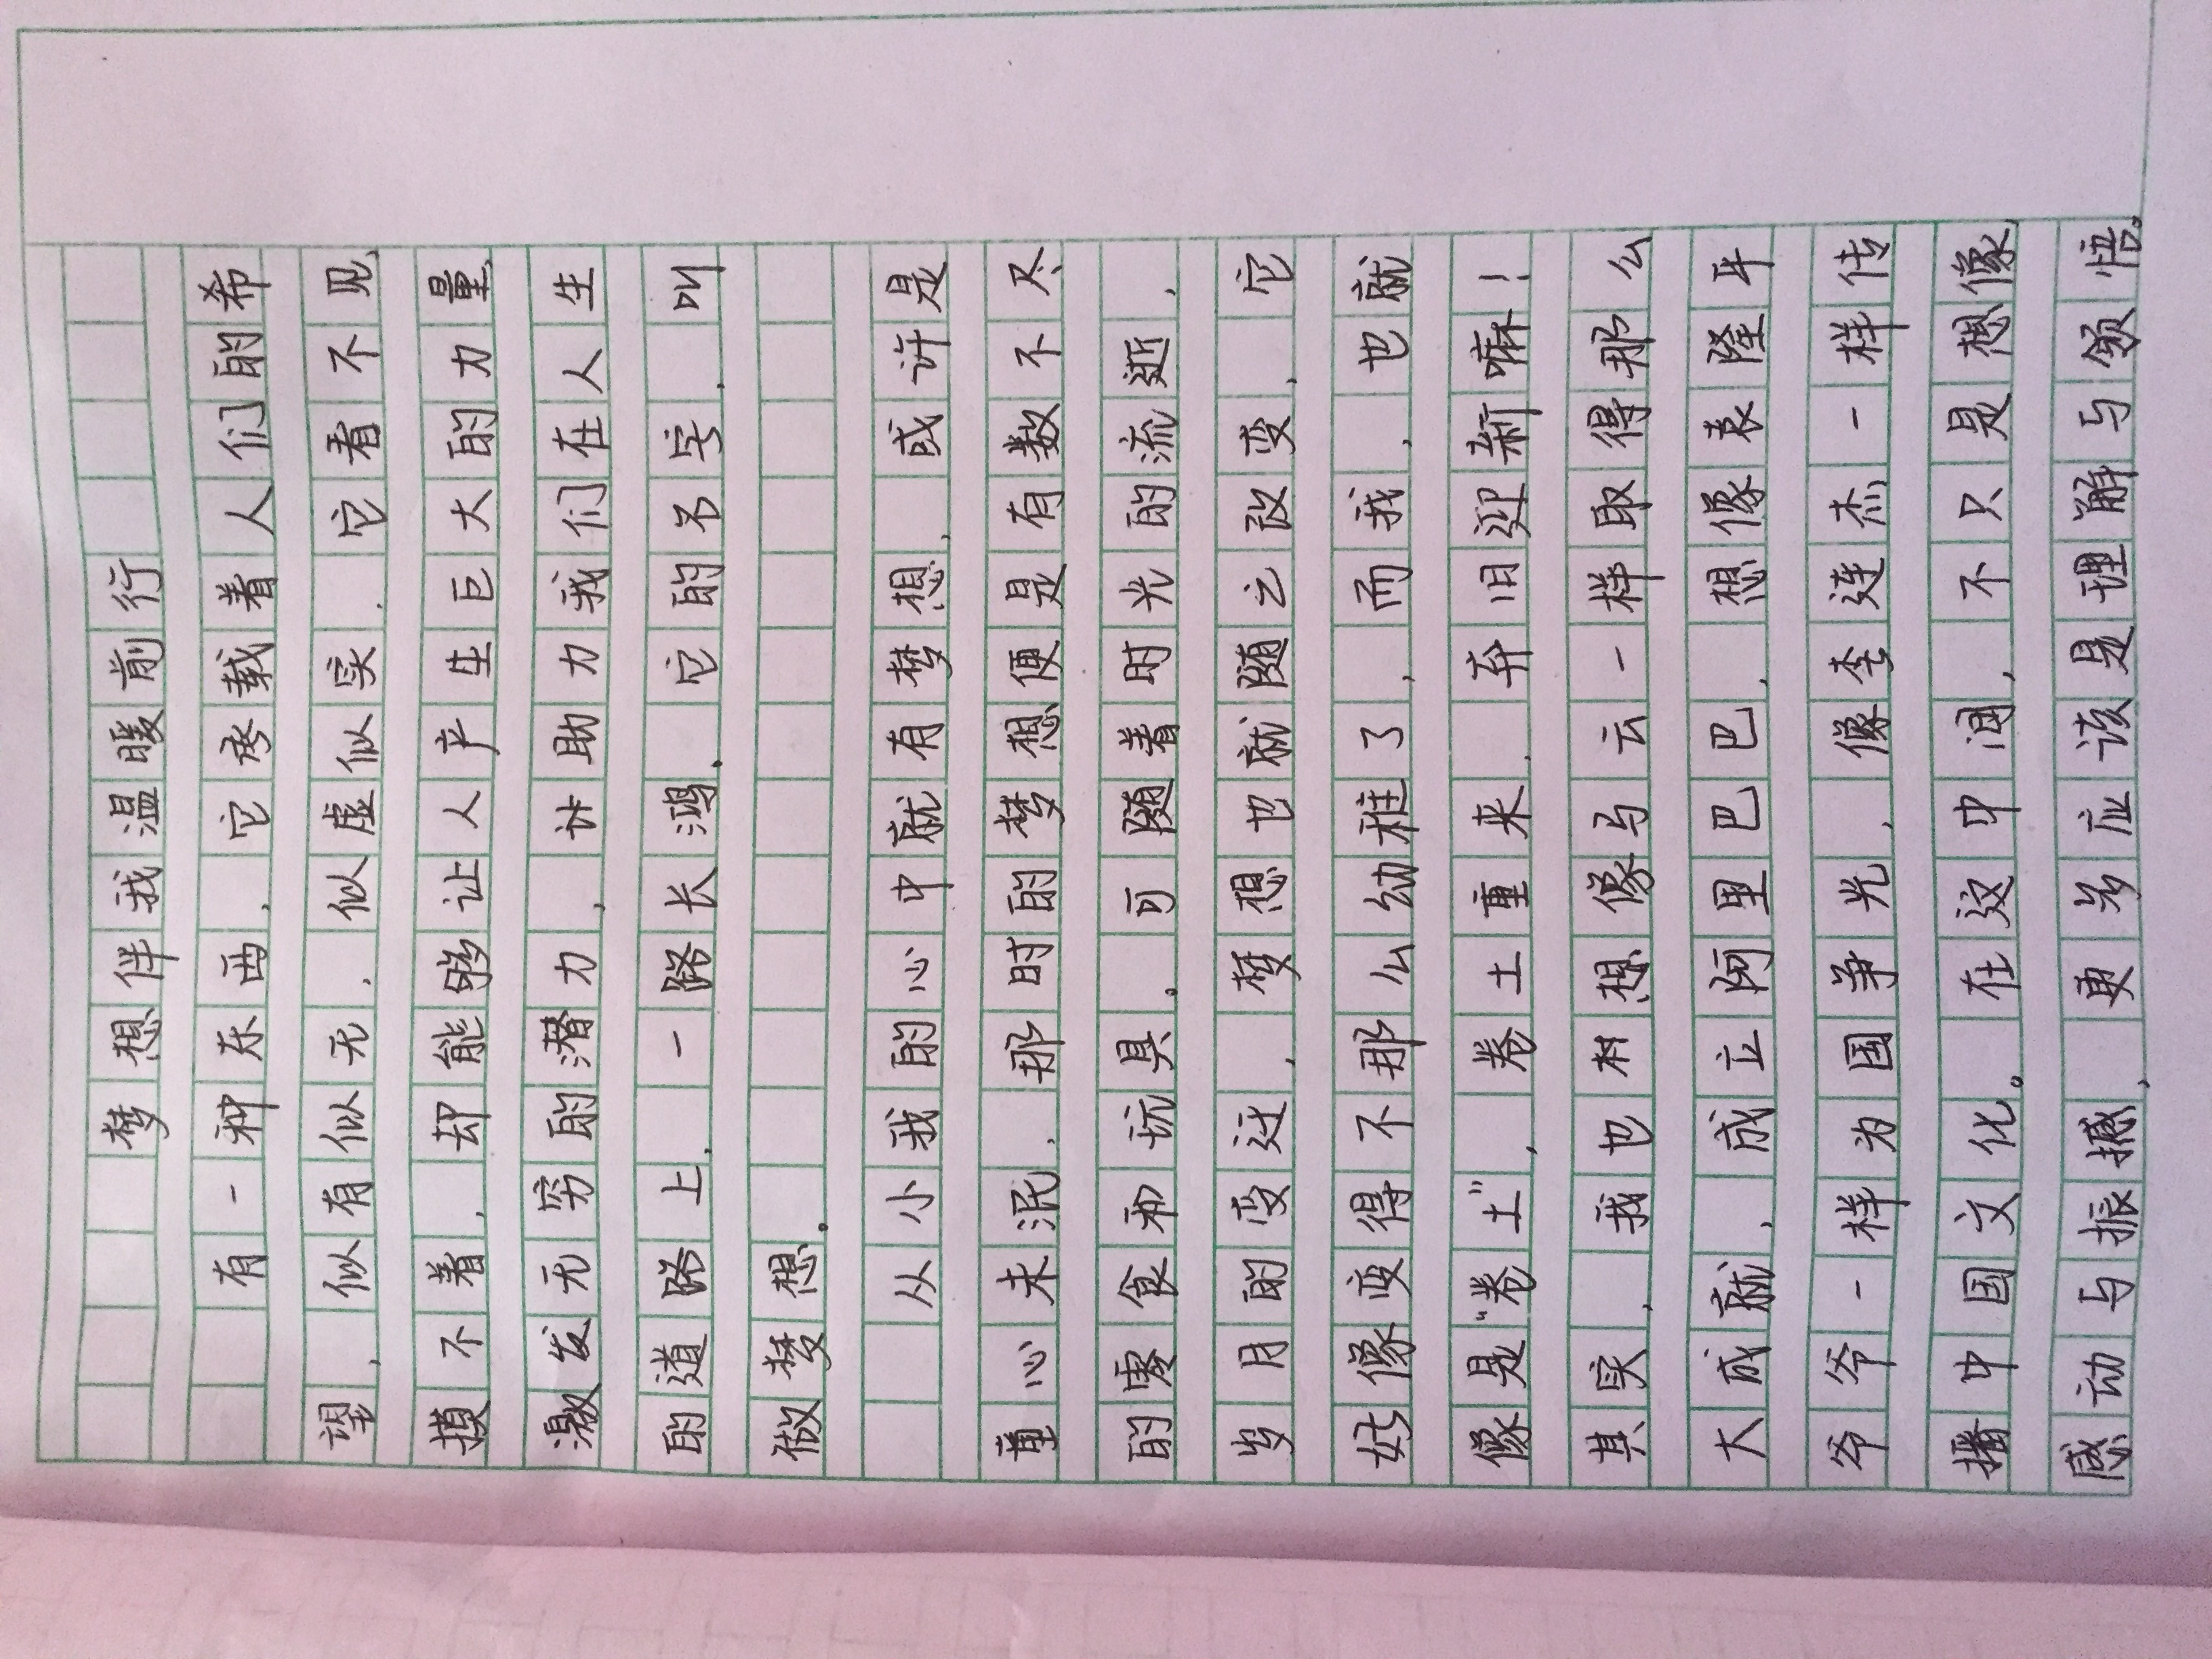 梦想伴我温暖前行
有一种东西，它承载着人们的希
望，似有似无，似虚似实，它看不见，
摸不着，却能够让人产生巨大的力量，
激发无穷的潜力，让助力我们在人生
的道路上，一路长鸿。它的名字，叫
做梦想。
从小我的心中就有梦想，或许是
童心未泯，那时的梦想便是有数不尽
的零食和玩具。可随着时光的流逝，
岁月的变迁，梦想也就随之改变，它
好像变得不那么幼稚了，而我，也就
像是“卷土”，卷土重来，弃旧迎新嘛！
其实，我也想像马云一样取得那么
大成就，成立阿里巴巴，想像袁隆平
爷爷一样为国争光，像李连杰一样传
播中国文化。在这中间，不只是想像，
感动与振撼，更多应该是理解与领悟。